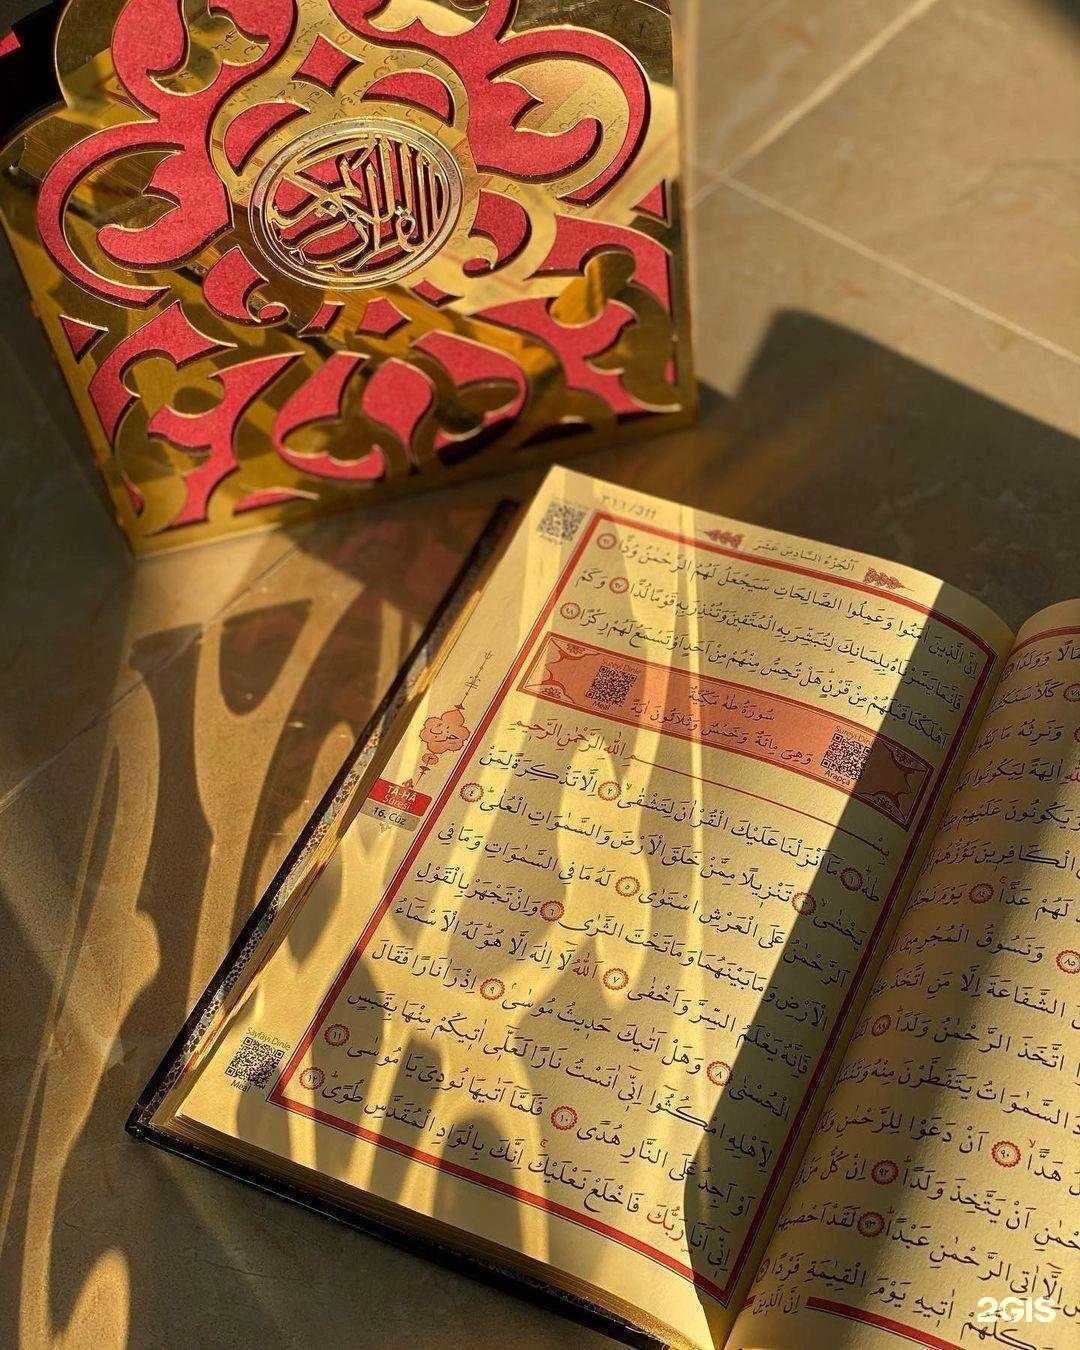 القرآن الكريم
٣١١/311
اَلْجُزْءُ السَّادِسَ عَشَرَ
اِنَّ الَّذٖينَ اٰمَنُوا وَعَمِلُوا الصَّالِحَاتِ سَيَجْعَلُ لَهُمُ الرَّحْمٰنُ وُدًّا ٩٦
فَاِنَّمَا يَسَّرْنَاهُ بِلِسَانِكَ لِتُبَشِّرَ بِهِ الْمُتَّقٖينَ وَتُنْذِرَ بِهٖ قَوْمًا لُدًّا ٩٧ وَكَمْ
اَهْلَكْنَا قَبْلَهُمْ مِنْ قَرْنٍ هَلْ تُحِسُّ مِنْهُمْ مِنْ اَحَدٍ اَوْ تَسْمَعُ لَهُمْ رِكْزًا ٩٨
Sayfayı Dinle
Meal
سُورَةُ طٰهٰ مَكِّيَّةٌ
وَهِىَ مِائَةٌ وَخَمْسٌ وَثَلَاثُونَ اٰيَةً
Arapça
بِسْمِ اللّٰهِ الرَّحْمٰنِ الرَّحٖيمِ
طٰهٰ ١ مَا اَنْزَلْنَا عَلَيْكَ الْقُرْاٰنَ لِتَشْقٰى ٢ اِلَّا تَذْكِرَةً لِمَنْ
يَخْشٰى ٣ تَنْزٖيلًا مِمَّنْ خَلَقَ الْاَرْضَ وَالسَّمٰوَاتِ الْعُلٰى ٤
اَلرَّحْمٰنُ عَلَى الْعَرْشِ اسْتَوٰى ٥ لَهُ مَا فِى السَّمٰوَاتِ وَمَا فِى
الْاَرْضِ وَمَا بَيْنَهُمَا وَمَا تَحْتَ الثَّرٰى ٦ وَاِنْ تَجْهَرْ بِالْقَوْلِ
فَاِنَّهُ يَعْلَمُ السِّرَّ وَاَخْفٰى ٧ اَللّٰهُ لَا اِلٰهَ اِلَّا هُوَ لَهُ الْاَسْمَاءُ
الْحُسْنٰى ٨ وَهَلْ اَتٰيكَ حَدٖيثُ مُوسٰى ٩ اِذْ رَاٰ نَارًا فَقَالَ
لِاَهْلِهِ امْكُثُوا اِنّٖى اٰنَسْتُ نَارًا لَعَلّٖى اٰتٖيكُمْ مِنْهَا بِقَبَسٍ
اَوْ اَجِدُ عَلَى النَّارِ هُدًى ١٠ فَلَمَّا اَتٰيهَا نُودِىَ يَا مُوسٰى ١١
اِنّٖى اَنَا رَبُّكَ فَاخْلَعْ نَعْلَيْكَ اِنَّكَ بِالْوَادِ الْمُقَدَّسِ طُوًى ١٢
حزب
٣
TÂ-HÂ
Sûresi
16. Cüz
Sayfayı Dinle
Meal
مَالًا وَوَلَدًا
كَلَّا سَنَكْتُبُ
وَنَرِثُهُ مَا يَقُولُ
اٰلِهَةً لِيَكُونُوا
وَيَكُونُونَ عَلَيْهِمْ
الْكَافِرٖينَ تَؤُزُّهُمْ
لَهُمْ عَدًّا ٨٤ يَوْمَ
وَنَسُوقُ الْمُجْرِمٖينَ
الشَّفَاعَةَ اِلَّا مَنِ اتَّخَذَ
اتَّخَذَ الرَّحْمٰنُ وَلَدًا
السَّمٰوَاتُ يَتَفَطَّرْنَ مِنْهُ وَتَنْشَقُّ
هَدًّا ٩٠ اَنْ دَعَوْا لِلرَّحْمٰنِ
اَنْ يَتَّخِذَ وَلَدًا ٩٢ اِنْ كُلُّ مَنْ
اِلَّا اٰتِى الرَّحْمٰنِ عَبْدًا ٩٣ لَقَدْ اَحْصٰيهُمْ
كُلُّهُمْ اٰتٖيهِ يَوْمَ الْقِيٰمَةِ فَرْدًا
اِنَّ الَّذٖينَ
2GIS